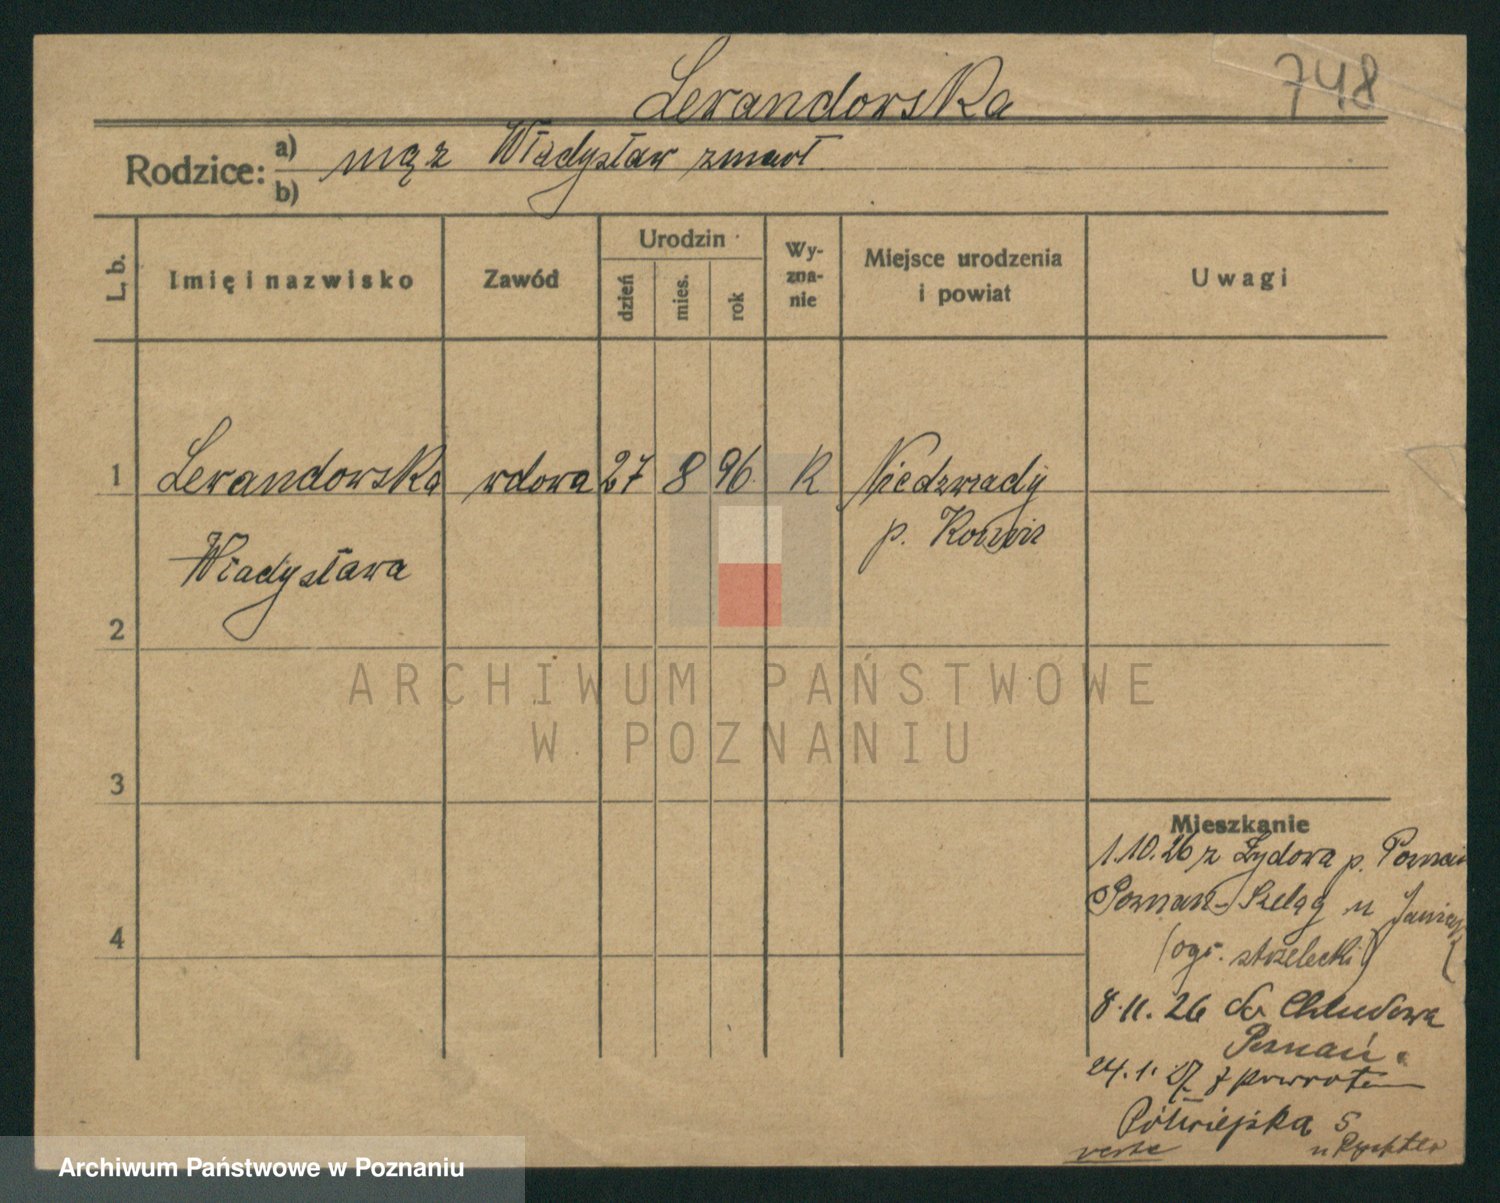 Lewandowska
748
Rodzice: a) mąż Władysław zmarł
b)
L. b.
Imię i nazwisko
Zawód
Urodzin
dzień
mies.
rok
Wy-
zna-
nie
Miejsce urodzenia
i powiat
Uwagi
1 Lewandowska wdowa 27 8 96 R Niedzwiady
p. Konin
Władysława
2
3
4
Mieszkanie
1.10.26 z Żydowa p. Poznań
Poznań-Szeląg u
(ogr. strzelecki)
8.11.26 do Chludowa
Poznań.
24.1.27 z powrotem
Półwiejska 5
verte u Rychter
ARCHIWUM PAŃSTWOWE
W POZNANIU
Archiwum Państwowe w Poznaniu